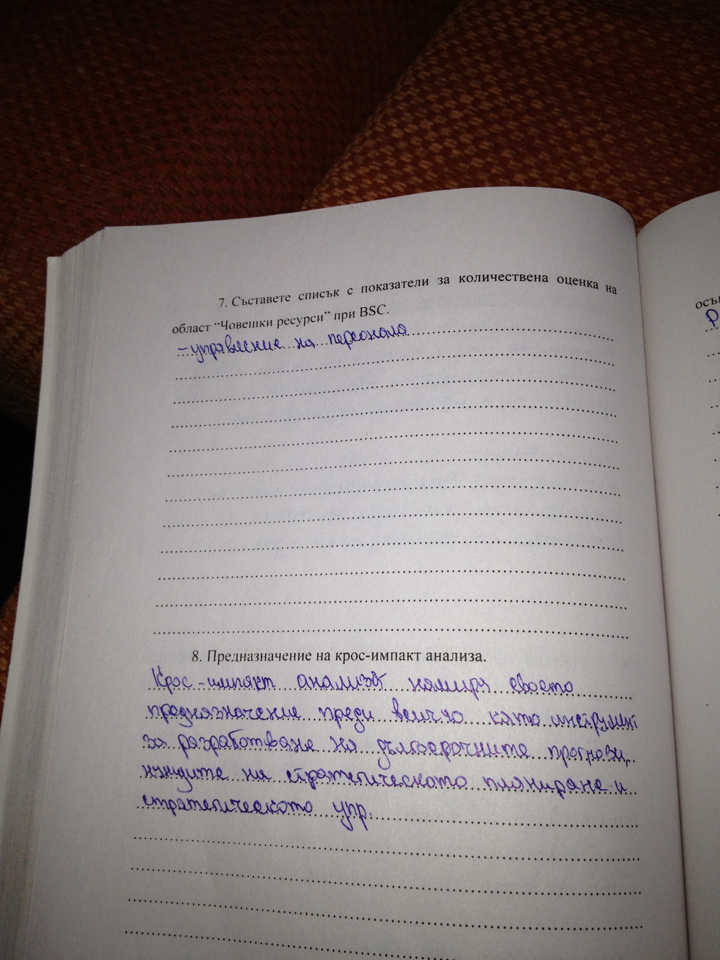 7. Съставете списък с показатели за количествена оценка на
област “Човешки ресурси” при BSC.
- управление на персонала
8. Предназначение на крос-импакт анализа.
Крос-импакт анализът намира своето
предназначение преди всичко като инструмент
за разработване на дългосрочните прогнози,
нуждите на стратегическото планиране и
стратегическото упр.
осъ
Р